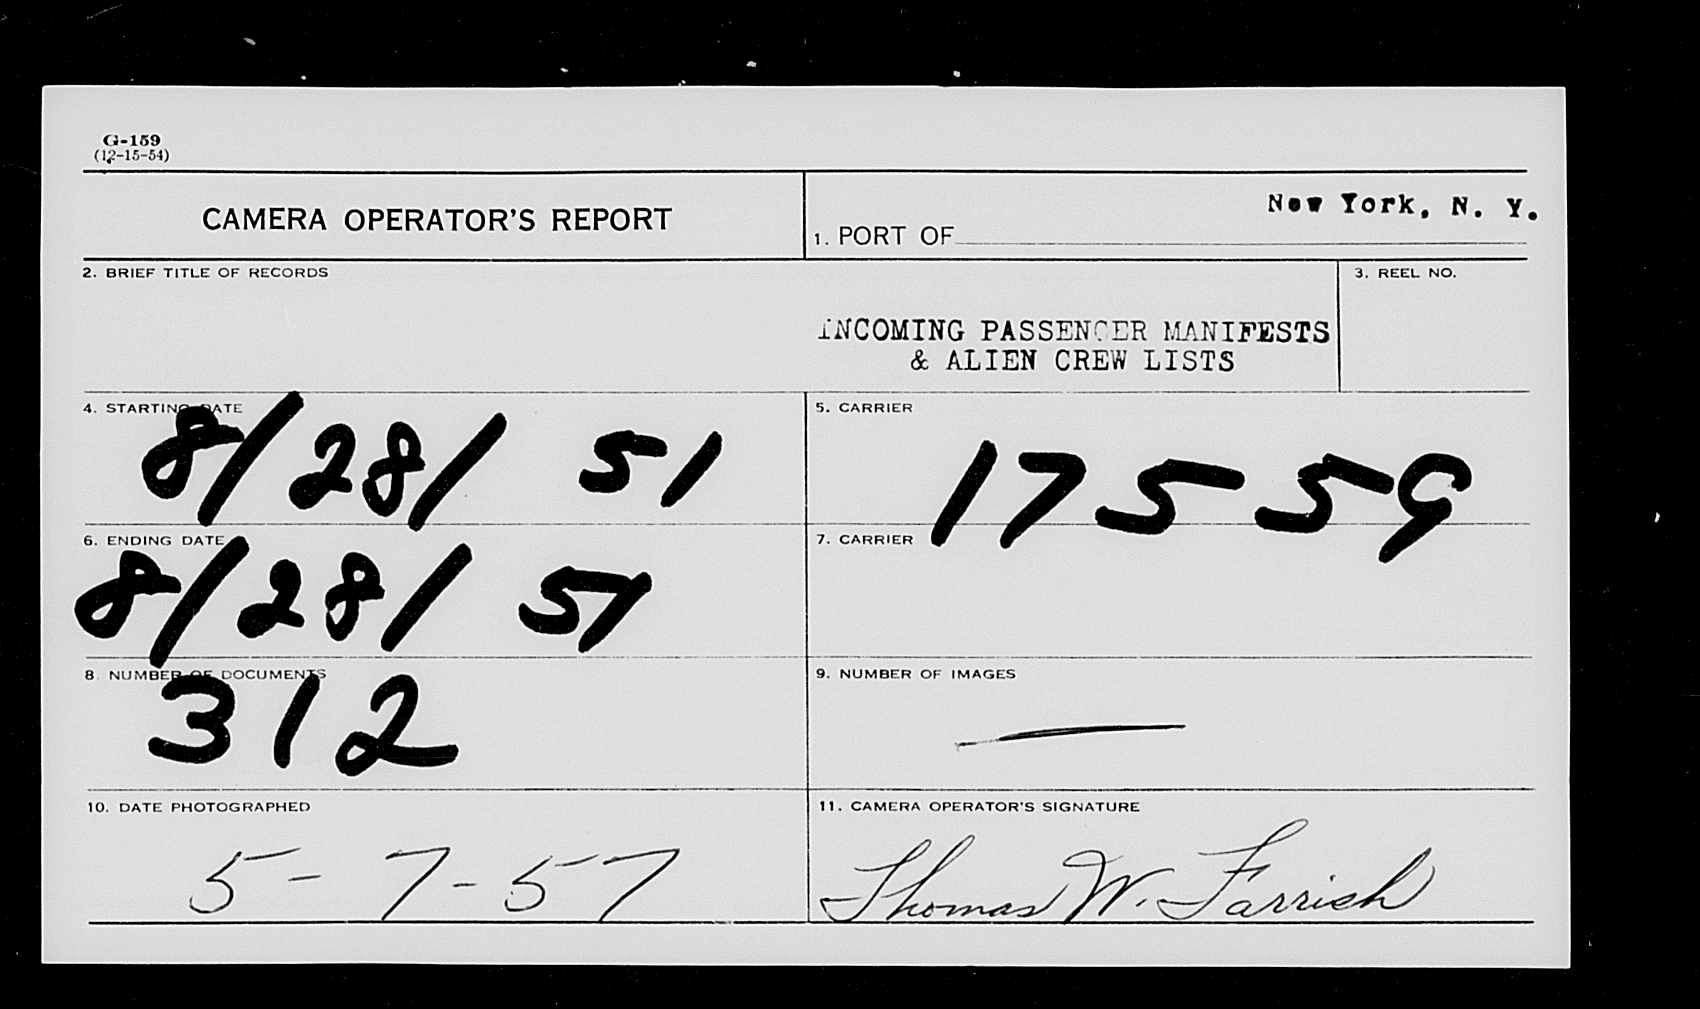 G-159
(12-15-54)
CAMERA OPERATOR'S REPORT
1. PORT OF New York, N. Y.
2. BRIEF TITLE OF RECORDS
INCOMING PASSENGER MANIFESTS
& ALIEN CREW LISTS
3. REEL NO.
4. STARTING DATE
8/28/ 51
5. CARRIER
17559
6. ENDING DATE
8/28/ 51
7. CARRIER
8. NUMBER OF DOCUMENTS
312
9. NUMBER OF IMAGES
—
10. DATE PHOTOGRAPHED
5-7-57
11. CAMERA OPERATOR'S SIGNATURE
Thomas W. Farrish